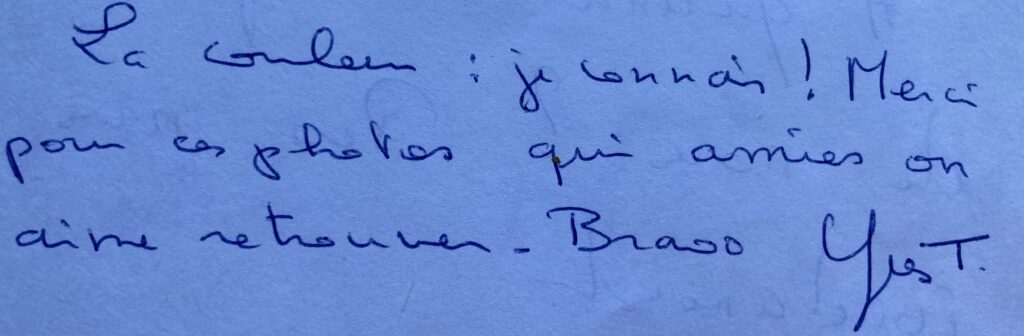 La couleur : je connais ! Merci
pour ces photos qui amies on
aime retrouver - Bravo Yves T.